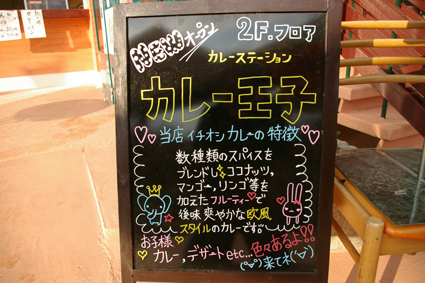 NEWオープン
2F.フロア
カレーステーション
カレー王子
当店イチオシカレーの特徴
数種類のスパイスを
ブレンドし、ココナッツ、
マンゴー、リンゴ等を
加えたフルーティーで
後味爽やかな欧風
スタイルのカレーです。
お子様
カレー,デザートetc…色々あるよ!!
(^o^)来てネ(^o^)